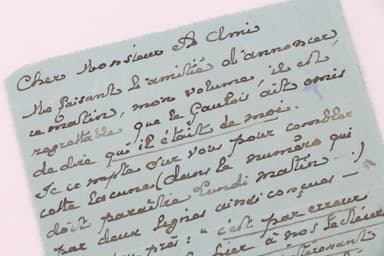 Cher Monsieur & Ami
Me faisant l'amitié d'annoncer
ce matin, mon volume, il est
regrettable que le Gaulois ait omis
de dire qu'il était de moi.
Je compte sur vous pour combler
cette lacune (dans le numéro qui
doit paraître Lundi matin)
par deux lignes ainsi conçues —
près: "c'est par erreur
hier à nos lecteurs